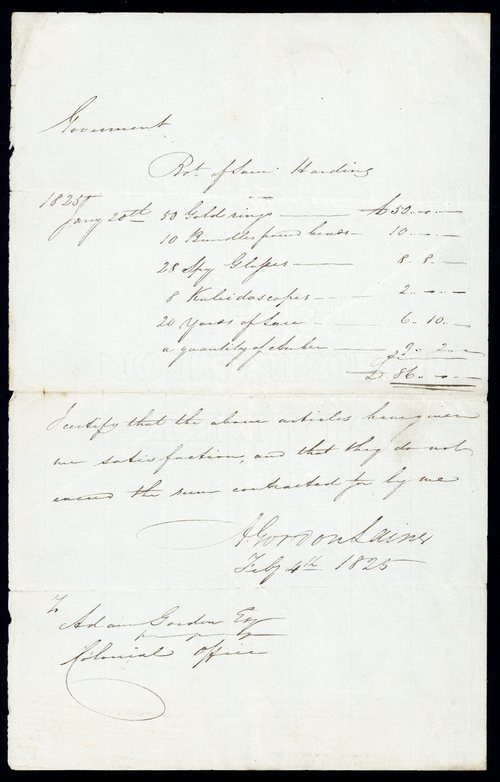 Government
Bot. of Saml. Harding
1825
Jany 20th 50 Gold rings — £50 .. - .. -
10 Bundles pound beads - 10 .. - .. -
28 Spy Glasses — 8 .. 8 .. -
8 Kaleidoscopes — 2 .. - .. -
20 Yards of Lace — 6 .. 10 .. -
a quantity of Amber — 9 .. 2 .. -
£ 86 .. - .. -
I certify that the above articles have given
me satisfaction, and that they do not
exceed the sum contracted for by me
A Gordon Laing
Feby 4th 1825
To
Adam Gordon Esq
Colonial Office